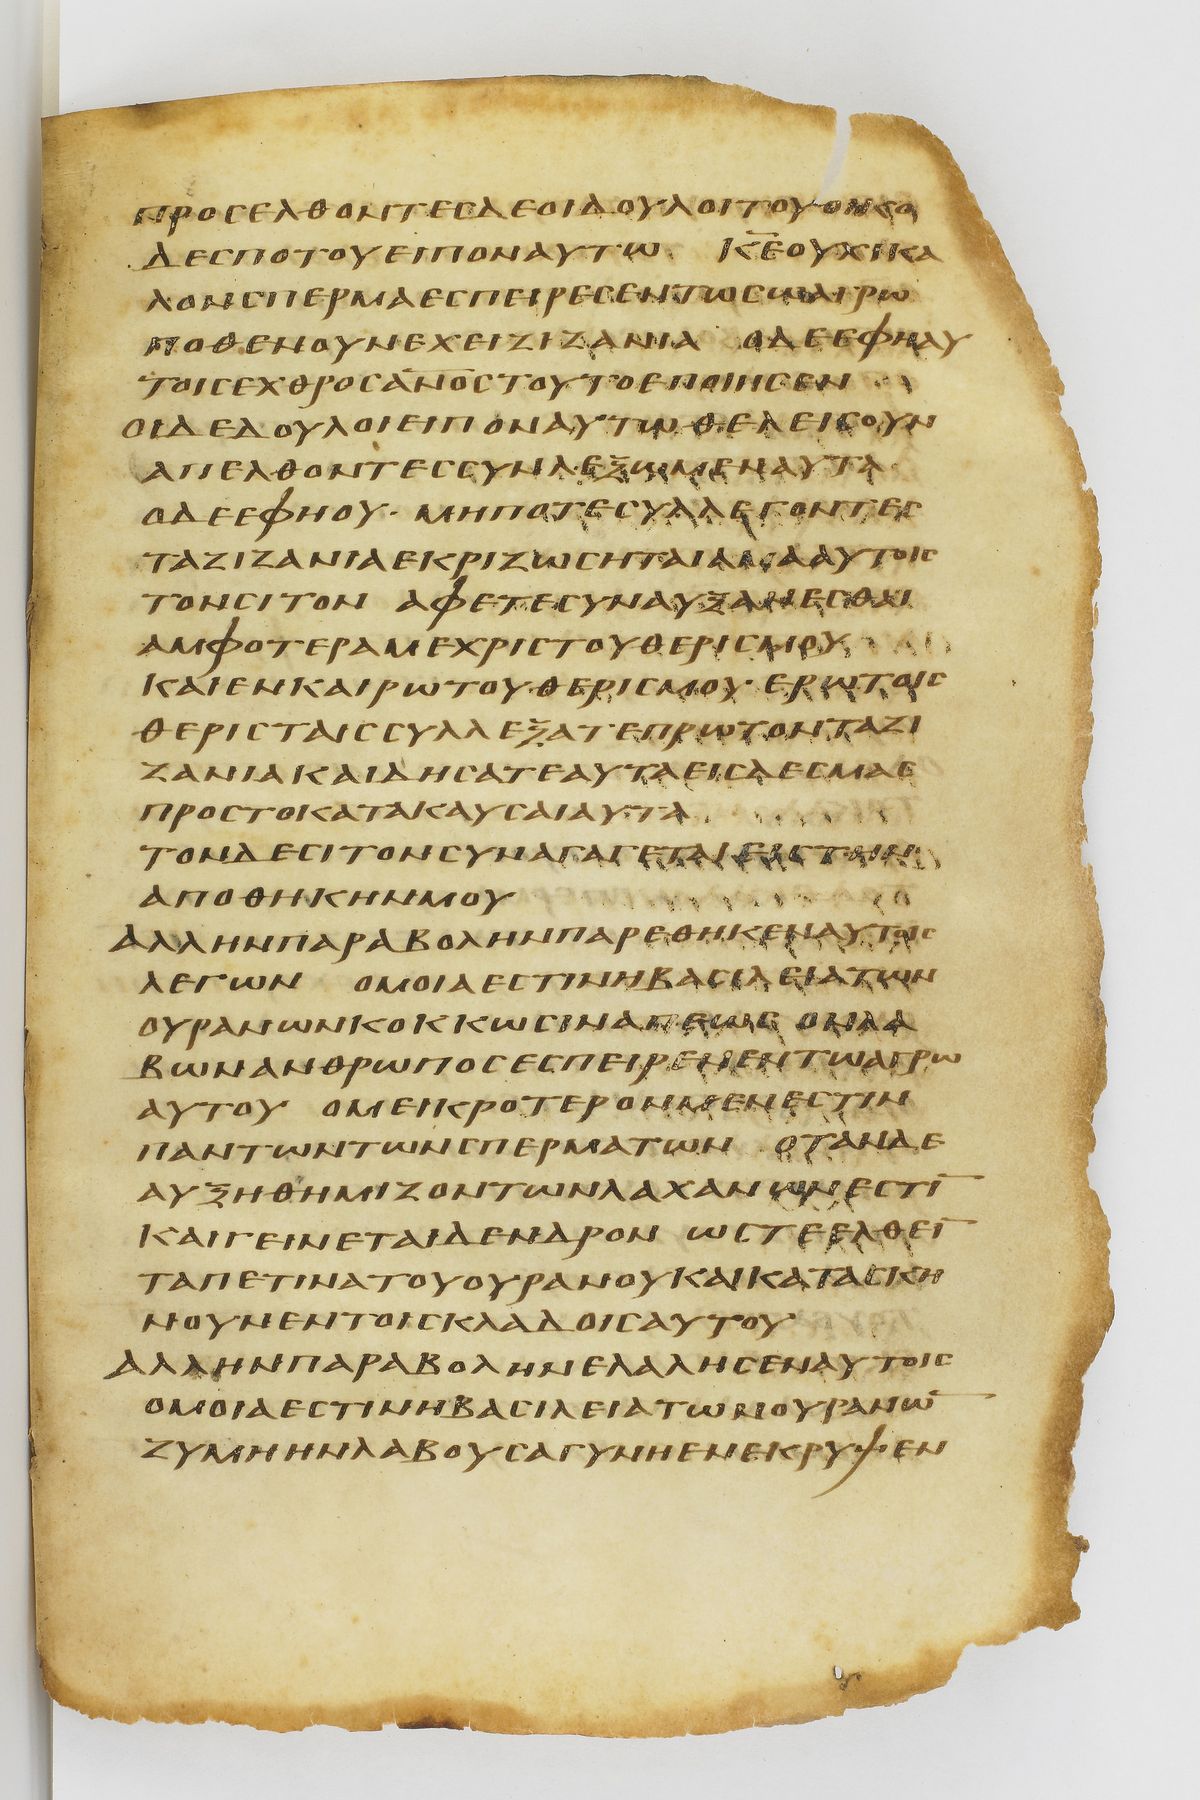 ΠΡΟCΕΛΘΟΝΤΕCΔΕΟΙΔΟΥΛΟΙΤΟΥΟΙΚΟ
ΔΕCΠΟΤΟΥΕΙΠΟΝΑΥΤΩ Κ̅Ε̅ΟΥΧΙΚΑ
ΛΟΝCΠΕΡΜΑΕCΠΕΙΡΕCΕΝΤΩCΩΑΓΡΩ
ΠΟΘΕΝΟΥΝΕΧΕΙΖΙΖΑΝΙΑ ΟΔΕΕΦΗΑΥ
ΤΟΙCΕΧΘΡΟCΑ̅Ν̅Ο̅C̅ΤΟΥΤΟΕΠΟΙΗCΕΝ
ΟΙΔΕΔΟΥΛΟΙΕΙΠΟΝΑΥΤΩΘΕΛΕΙCΟΥΝ
ΑΠΕΛΘΟΝΤΕCCΥΝΛΕΞΩΜΕΝΑΥΤΑ
ΟΔΕΕΦΗΟΥ· ΜΗΠΟΤΕCΥΛΛΕΓΟΝΤΕC
ΤΑΖΙΖΑΝΙΑΕΚΡΙΖΩCΗΤΑΙΑΜΑΑΥΤΟΙC
ΤΟΝCΙΤΟΝ ΑΦΕΤΕCΥΝΑΥΞΑΝΕCΘΑΙ
ΑΜΦΟΤΕΡΑΜΕΧΡΙCΤΟΥΘΕΡΙCΜΟΥ
ΚΑΙΕΝΚΑΙΡΩΤΟΥΘΕΡΙCΜΟΥ ΕΡΩΤΟΙC
ΘΕΡΙCΤΑΙCCΥΛΛΕΞΑΤΕΠΡΩΤΟΝΤΑΖΙ
ΖΑΝΙΑΚΑΙΔΗCΑΤΕΑΥΤΑΕΙCΔΕCΜΑC
ΠΡΟCΤΟΚΑΤΑΚΑΥCΑΙΑΥΤΑ
ΤΟΝΔΕCΙΤΟΝCΥΝΑΓΑΓΕΤΑΙΕΙCΤΗΝ
ΑΠΟΘΗΚΗΝΜΟΥ
ΑΛΛΗΝΠΑΡΑΒΟΛΗΝΠΑΡΕΘΗΚΕΝΑΥΤΟΙC
ΛΕΓΩΝ ΟΜΟΙΑΕCΤΙΝΗΒΑCΙΛΕΙΑΤΩΝ
ΟΥΡΑΝΩΝΚΟΚΚΩCΙΝΑΠΕΩC ΟΝΛΑ
ΒΩΝΑΝΘΡΩΠΟCΕCΠΕΙΡΕΝΕΝΤΩΑΓΡΩ
ΑΥΤΟΥ ΟΜΕΙΚΡΟΤΕΡΟΝΜΕΝΕCΤΙΝ
ΠΑΝΤΩΝΤΩΝCΠΕΡΜΑΤΩΝ ΟΤΑΝΔΕ
ΑΥΞΗΘΗΜΙΖΟΝΤΩΝΛΑΧΑΝΩΝΕCΤΙ̅
ΚΑΙΓΕΙΝΕΤΑΙΔΕΝΔΡΟΝ ΩCΤΕΕΛΘΕΙ̅
ΤΑΠΕΤΙΝΑΤΟΥΟΥΡΑΝΟΥΚΑΙΚΑΤΑCΚΗ
ΝΟΥΝΕΝΤΟΙCΚΛΑΔΟΙCΑΥΤΟΥ
ΑΛΛΗΝΠΑΡΑΒΟΛΗΝΕΛΑΛΗCΕΝΑΥΤΟΙC
ΟΜΟΙΑΕCΤΙΝΗΒΑCΙΛΕΙΑΤΩΝΟΥΡΑΝΩ̅
ΖΥΜΗΗΝΛΑΒΟΥCΑΓΥΝΗΕΝΕΚΡΥΨΕΝ